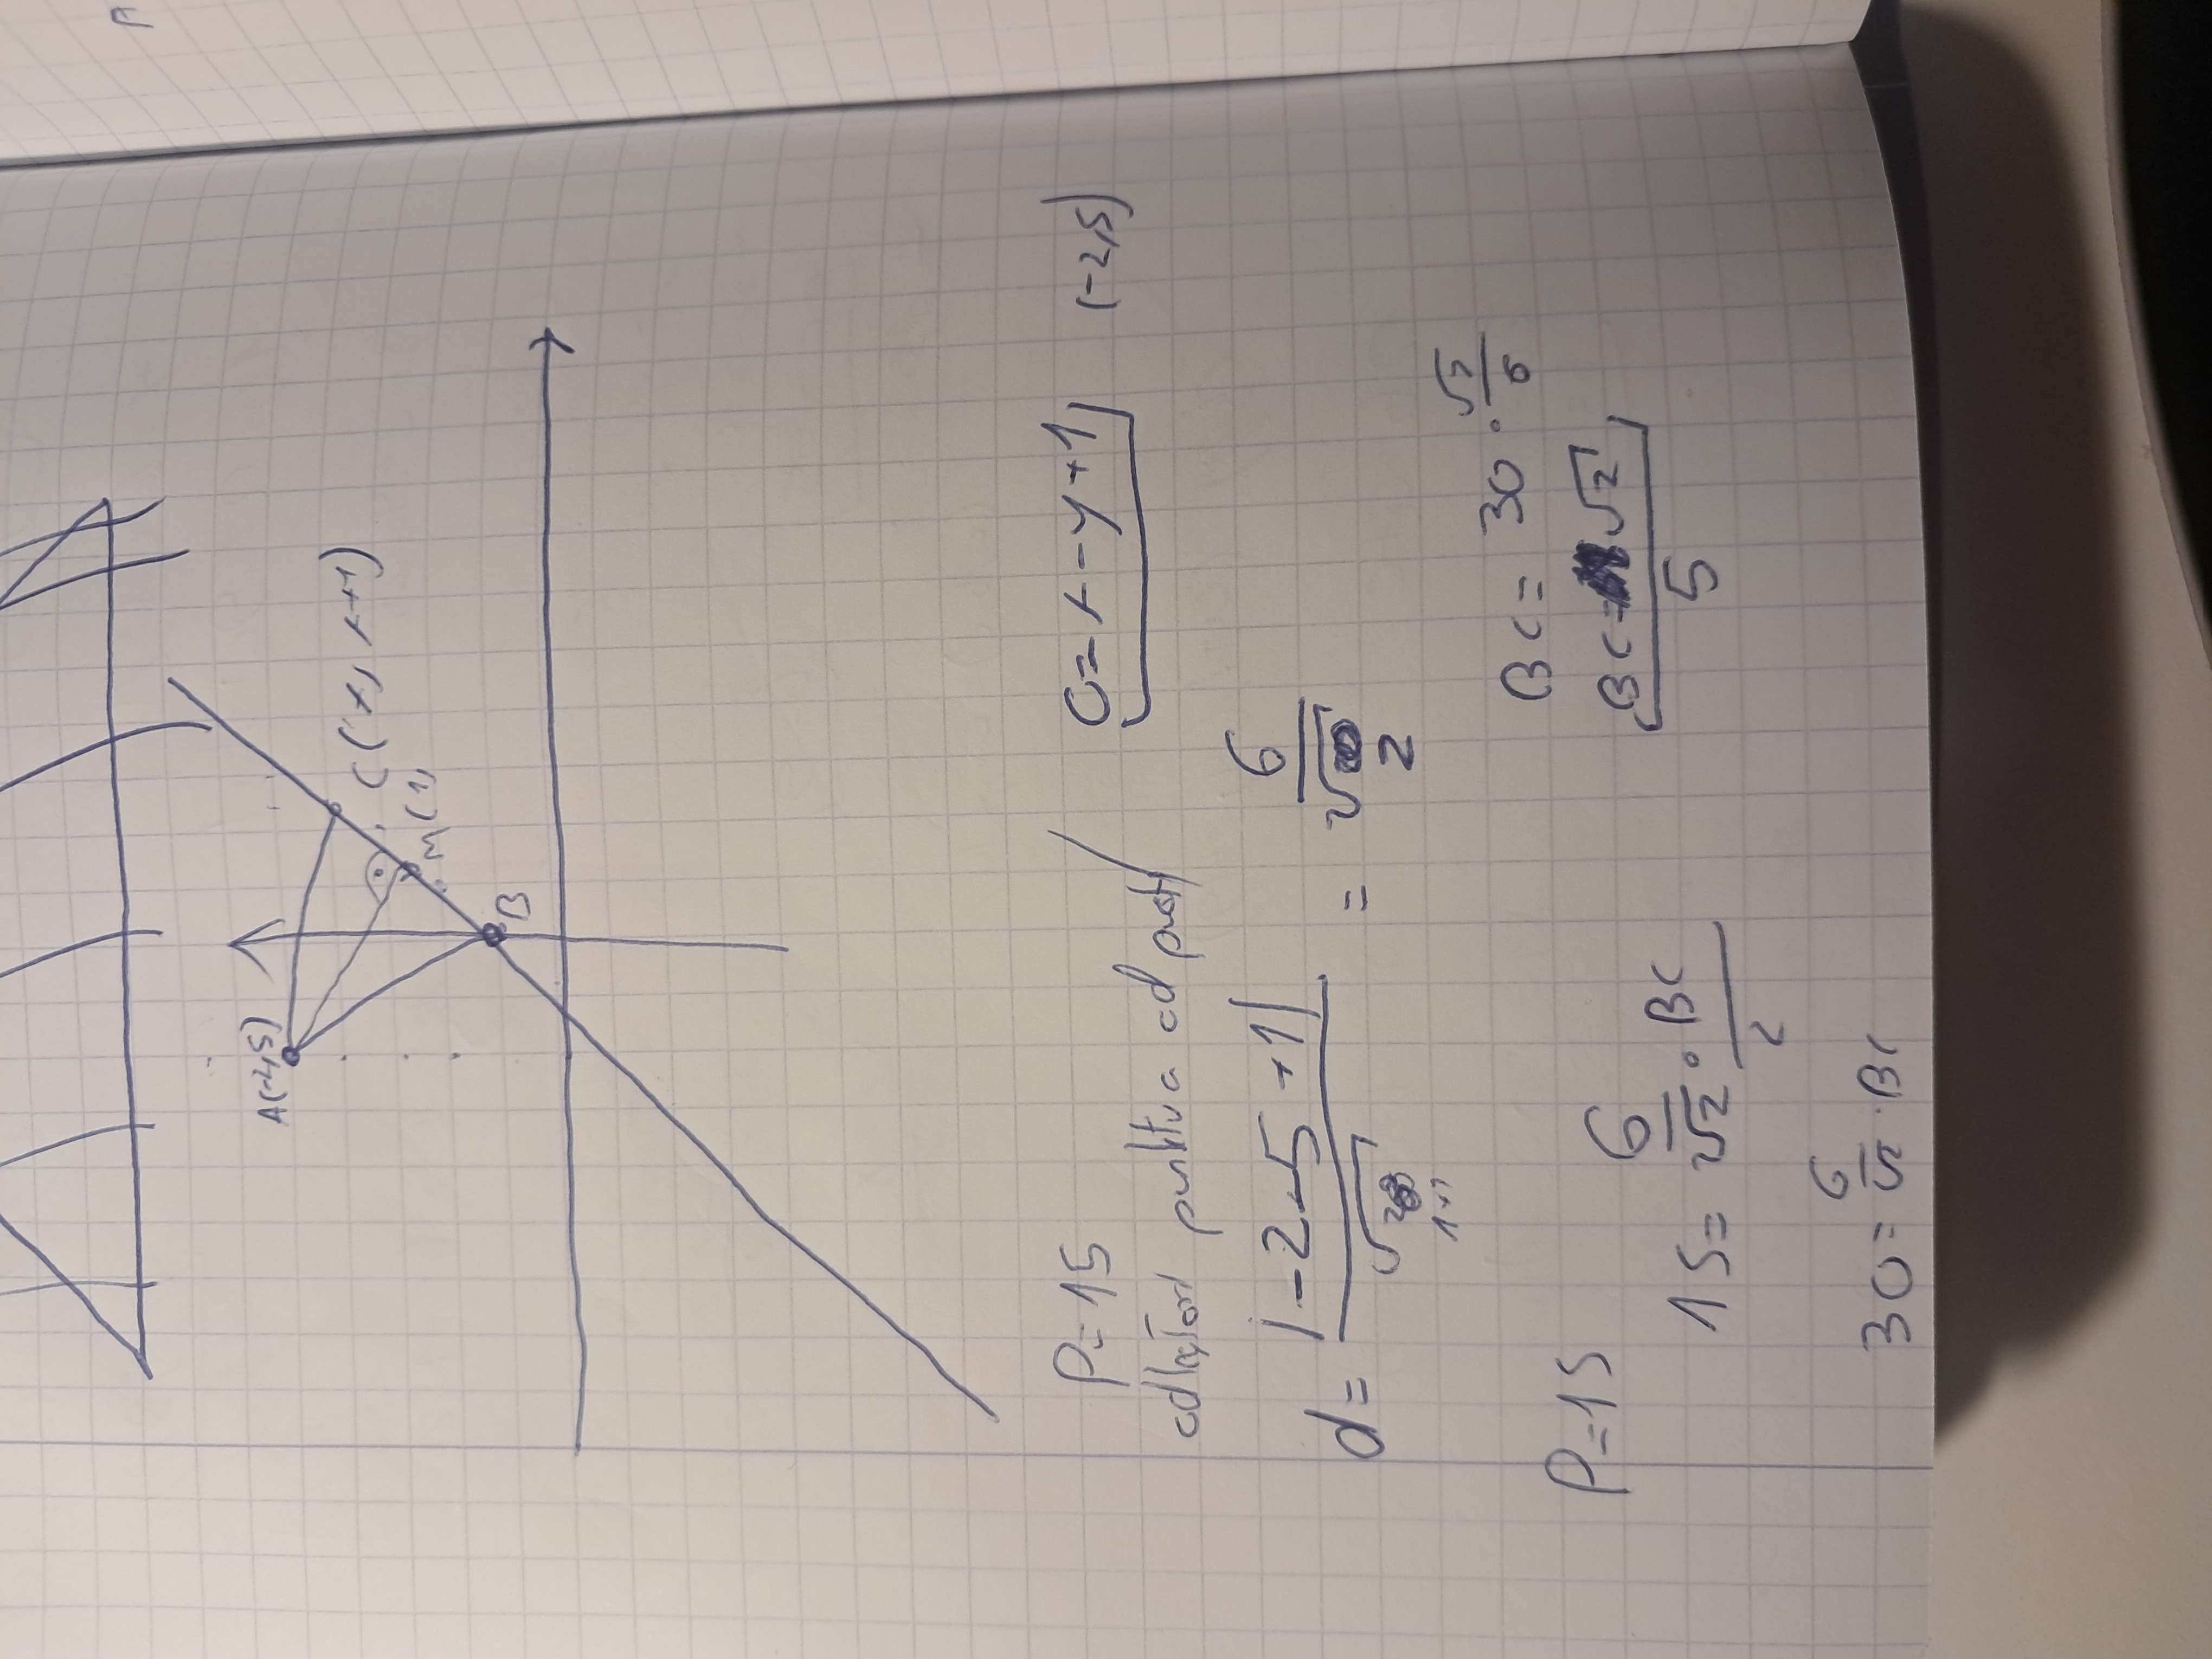 A(-2,5)
C(x, x+1)
M(1,
B
P=15
0=x-y+1
(-2,5)
odległość punktu a od prostej
d = |-2-5+1| / √1+1 = 6/√2
P=15
15 = 6/√2 · BC / 2
30 = 6/√2 · BC
BC = 30 · √2/6
BC = 5√2